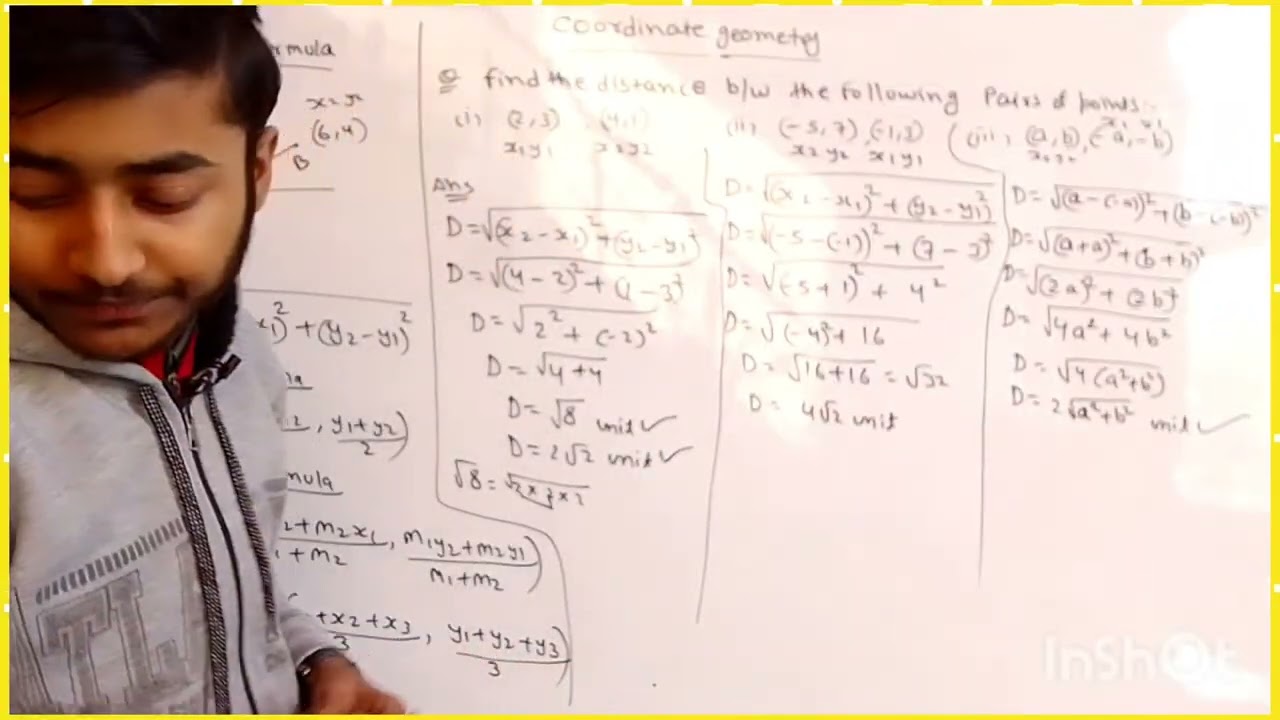 Coordinate geometry
Q find the distance b/w the following Pairs of points:-
(i) (2,3) (4,1)
x₁y₁ x₂y₂
(ii) (-5,7), (-1,3)
x₂y₂ x₁y₁
x₁ y₁
(iii) (a,b), (-a,-b)
x₂y₂
Ans
D=√(x₂-x₁)²+(y₂-y₁)²
D=√(4-2)²+(1-3)²
D=√2²+(-2)²
D=√4+4
D=√8 unit✓
D=2√2 unit✓
√8=√2×2×2
D=√(x₂-x₁)²+(y₂-y₁)²
D=√(-5-(-1))²+(7-3)²
D=√(-5+1)²+4²
D=√(-4)²+16
D=√16+16=√32
D= 4√2 unit
D=√(a-(-a))²+(b-(-b))²
D=√(a+a)²+(b+b)²
D=√(2a)²+(2b)²
D=√4a²+4b²
D=√4(a²+b²)
D=2√a²+b² unit✓
rmula
x₂y₂
(6,4)
B
x₁)²+(y₂-y₁)²
la
, y₁+y₂)
2
mula
2+m₂x₁, m₁y₂+m₂y₁)
+m₂ m₁+m₂
+x₂+x₃, y₁+y₂+y₃)
3 3
TL
InShOt